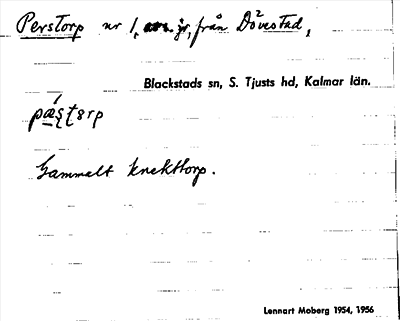 Perstorp nr 1, jr, från Dövestad,
Blackstads sn, S. Tjusts hd, Kalmar län.
Gammalt knekttorp.
Lennart Moberg 1954, 1956